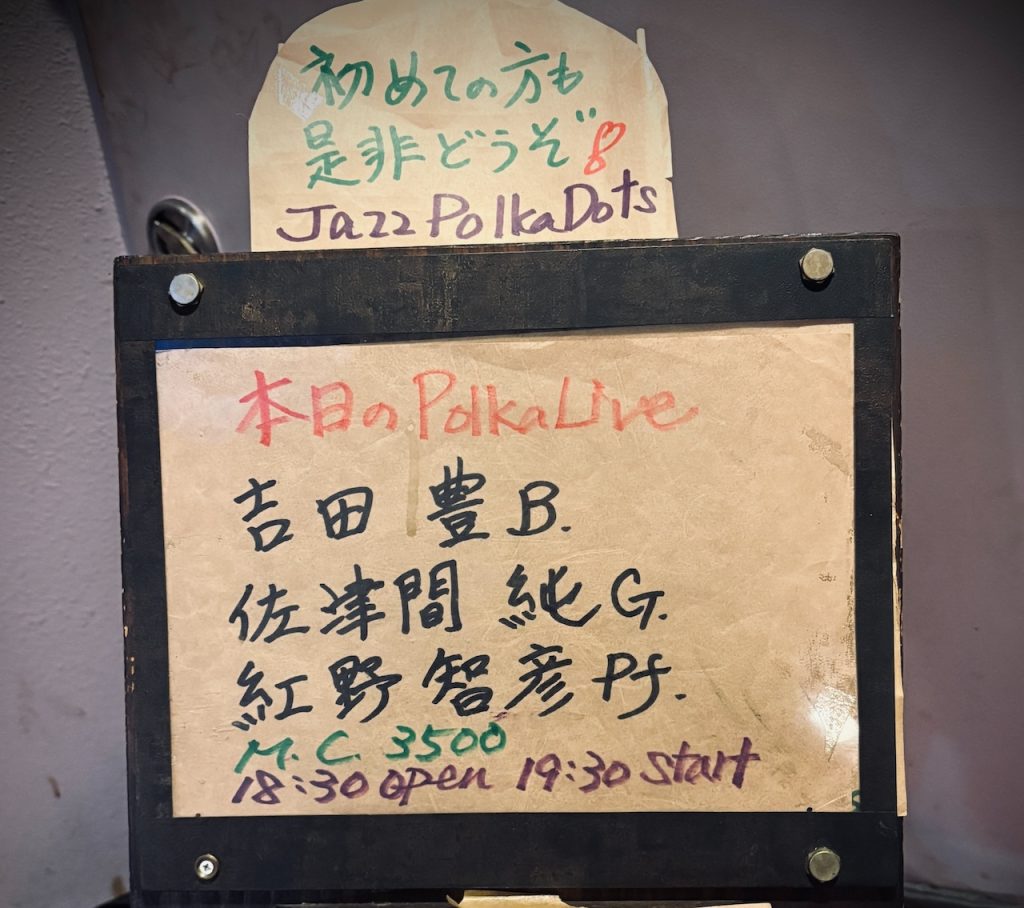 初めての方も
是非どうぞ
Jazz PolkaDots
本日のPolkaLive
吉田 豊 B.
佐津間 純 G.
紅野 智彦 Pf.
M.C. 3500
18:30 open 19:30 start